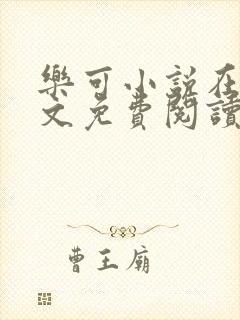 樂可小說在
文免費閱讀
曹王廟